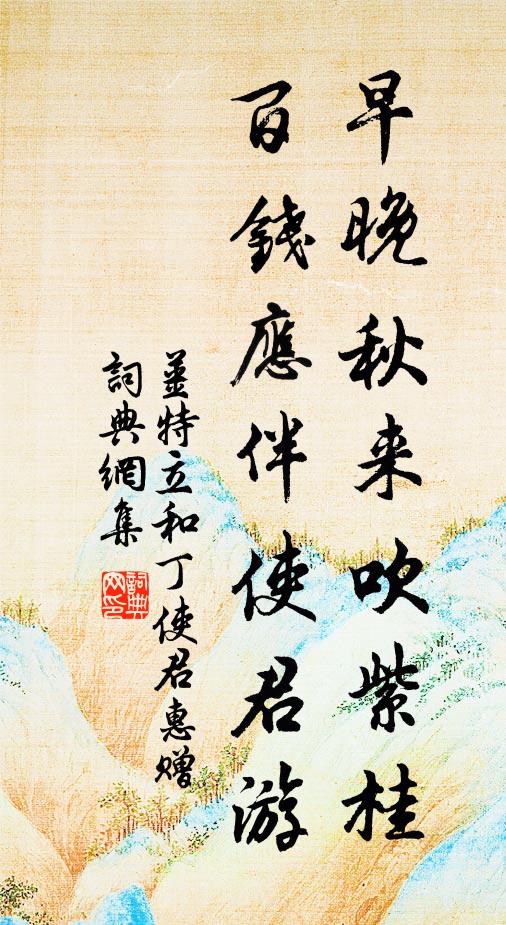 早晚秋来吹紫桂
百錢應伴使君游
姜特立和丁使君惠赠
詞典網集
詞典网印